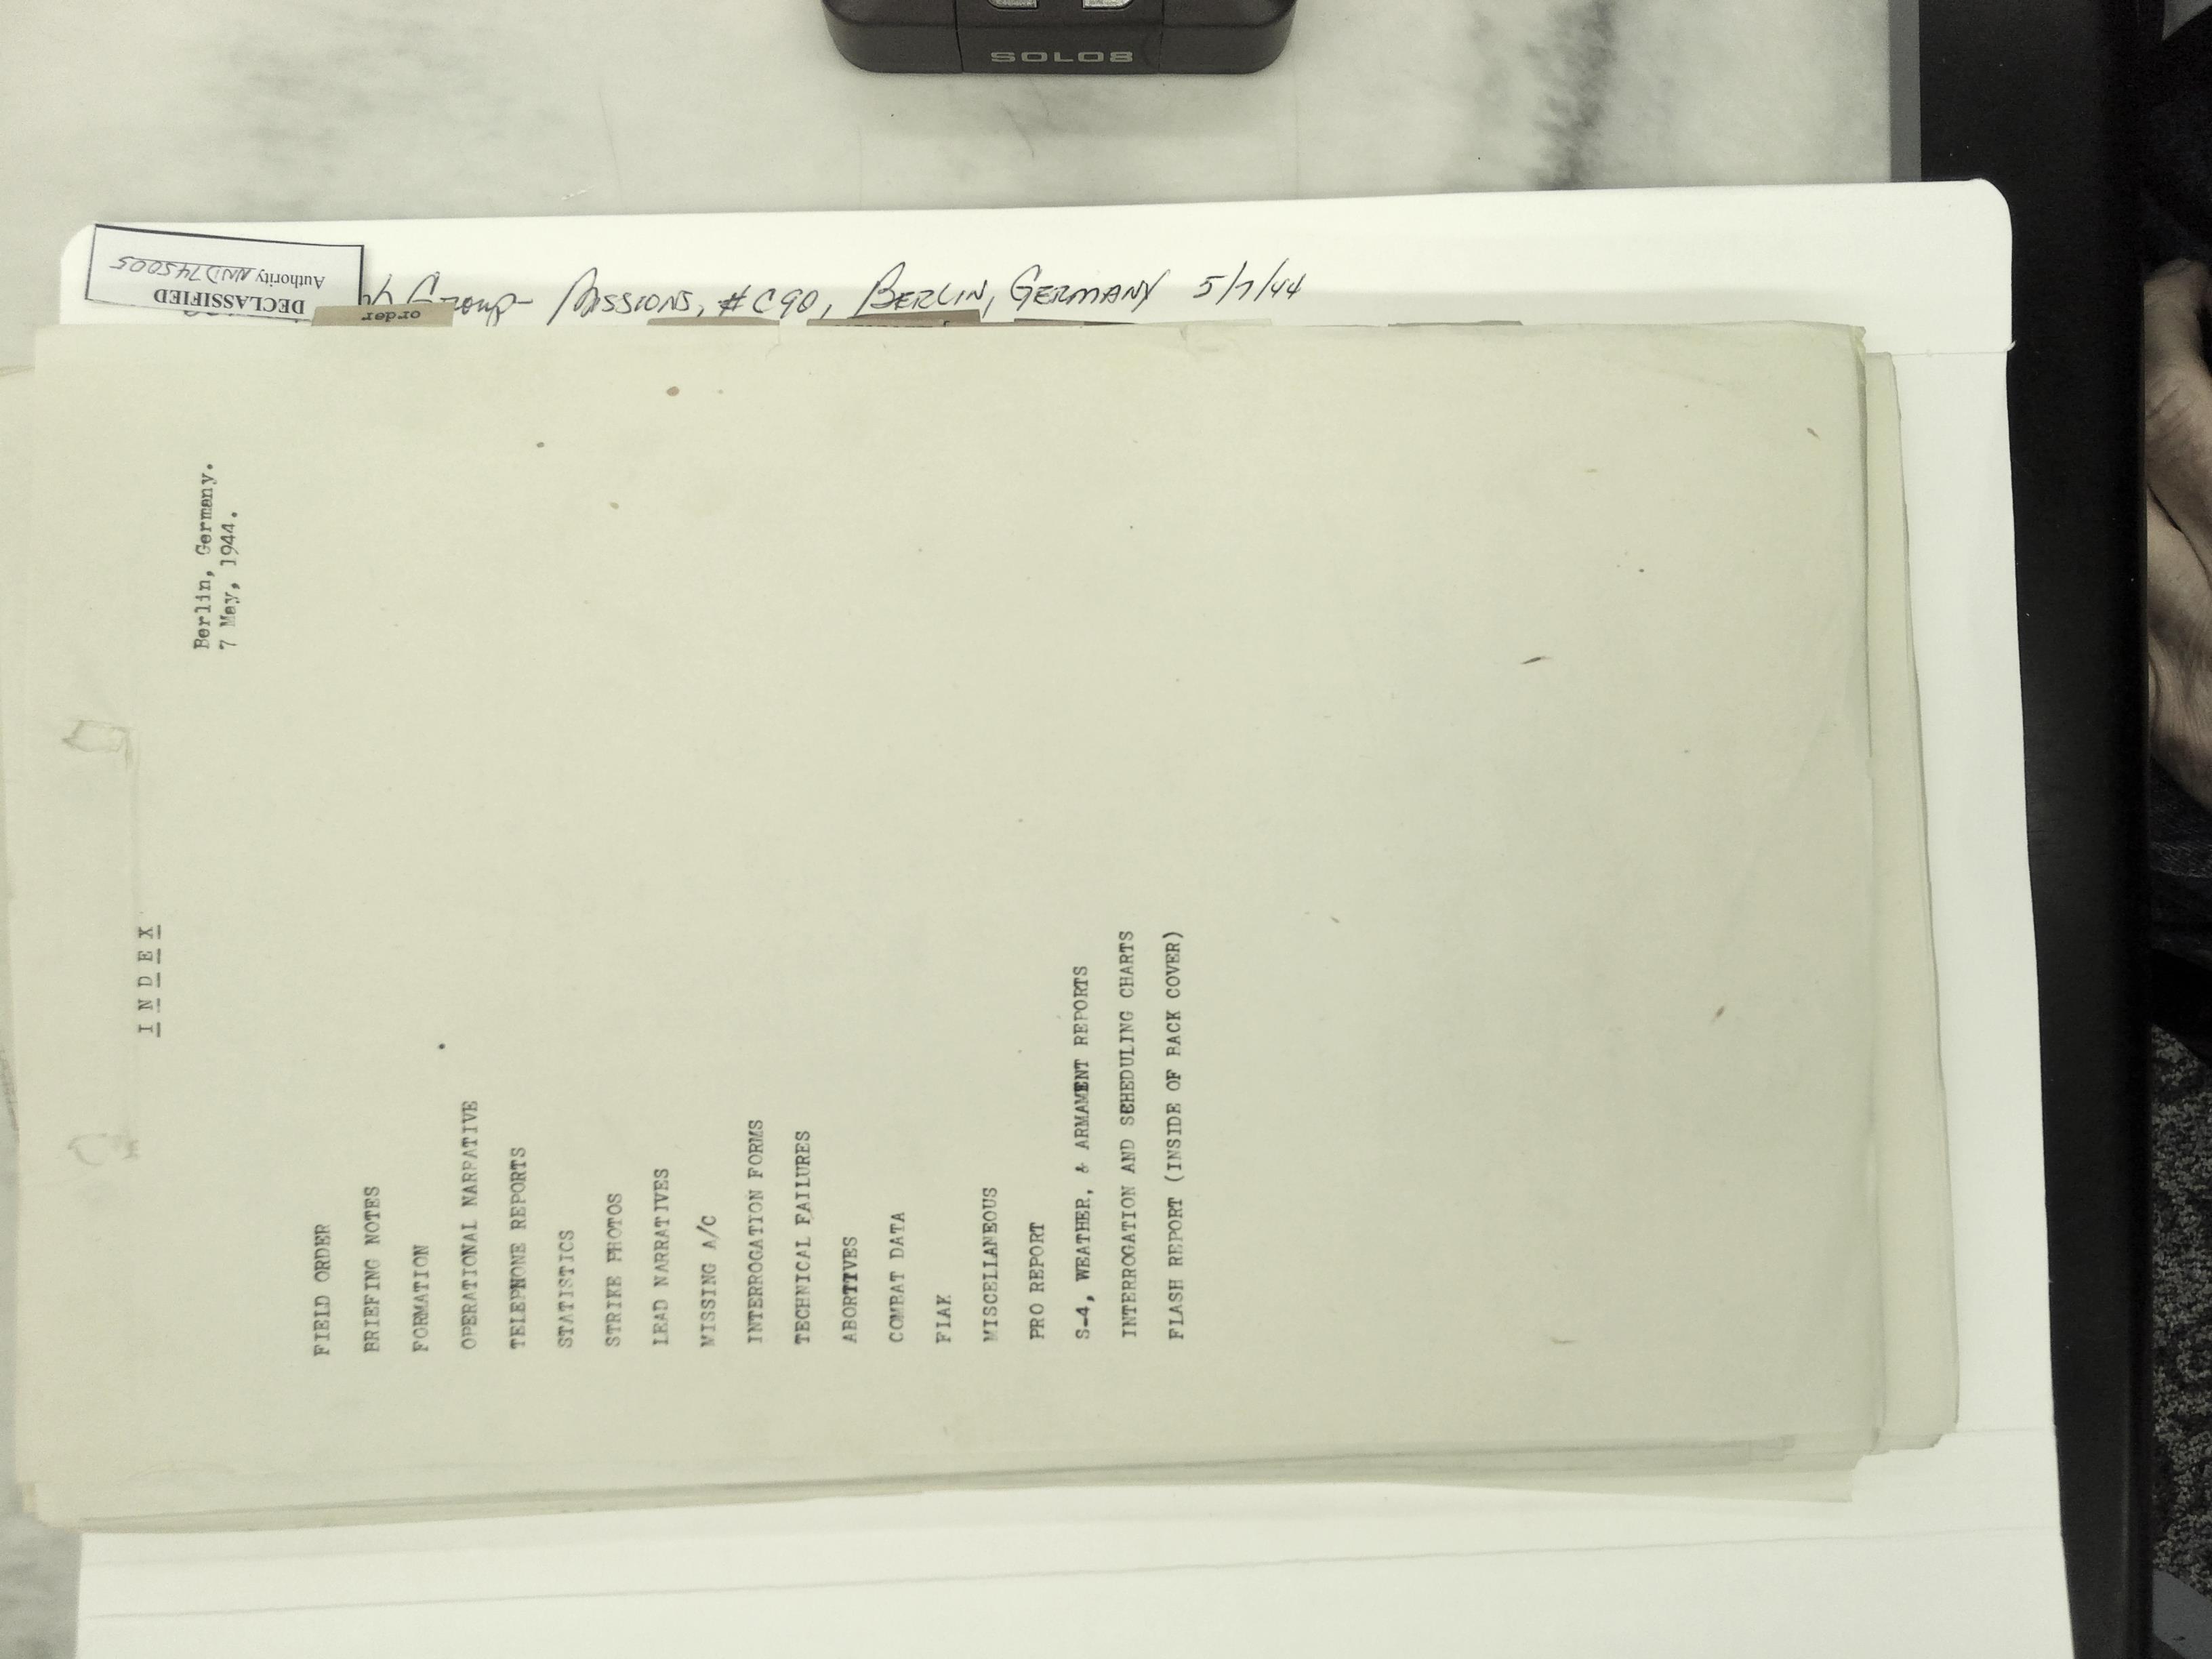 SOLO8
DECLASSIFIED
Authority NND745005
Group- Missions, #C90, BERLIN, GERMANY 5/7/44
order
I N D E X
Berlin, Germany.
7 May, 1944.
FIELD ORDER
BRIEFING NOTES
FORMATION
OPERATIONAL NARRATIVE
TELEPHONE REPORTS
STATISTICS
STRIKE PHOTOS
LEAD NARRATIVES
MISSING A/C
INTERROGATION FORMS
TECHNICAL FAILURES
ABORTIVES
COMBAT DATA
FLAK
MISCELLANEOUS
PRO REPORT
S-4, WEATHER, & ARMAMENT REPORTS
INTERROGATION AND SCHEDULING CHARTS
FLASH REPORT (INSIDE OF BACK COVER)